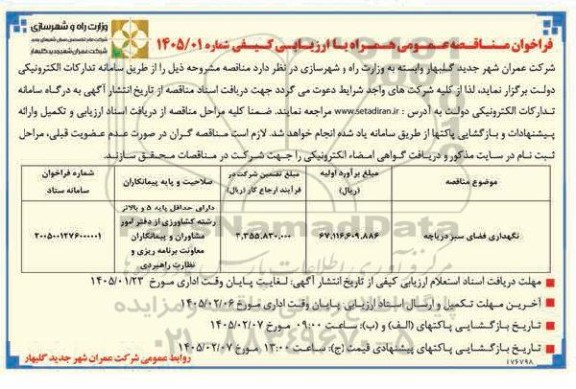 وزارت راه و شهرسازی
شرکت عمران شهر جدید گلبهار
فراخوان مناقصه عمومی همراه با ارزیابی کیفی شماره ۱۴۰۵/۰۱
شرکت عمران شهر جدید گلبهار وابسته به وزارت راه و شهرسازی در نظر دارد مناقصه مشروحه ذیل را از طریق سامانه تدارکات الکترونیکی
دولت برگزار نماید، لذا از کلیه شرکت های واجد شرایط دعوت می گردد جهت دریافت اسناد مناقصه از تاریخ انتشار آگهی به درگاه سامانه
تدارکات الکترونیکی دولت به آدرس : www.setadiran.ir مراجعه نمایند. ضمنا کلیه مراحل مناقصه از دریافت اسناد ارزیابی و تکمیل وارائه
پیشنهادات و بازگشایی پاکتها از طریق سامانه یاد شده انجام خواهد شد. لازم است مناقصه گران در صورت عدم عضویت قبلی، مراحل
ثبت نام در سایت مذکور و دریافت گواهی امضاء الکترونیکی را جهت شرکت در مناقصات محقق سازند.
موضوع مناقصه | مبلغ برآورد اولیه (ریال) | مبلغ تضمین شرکت در فرآیند ارجاع کار (ریال) | صلاحیت و پایه پیمانکاران | شماره فراخوان سامانه ستاد
نگهداری فضای سبز دریاچه | ۶۷,۱۱۶,۶۰۹,۸۸۶ | ۳,۳۵۵,۸۳۰,۰۰۰ | دارای حداقل پایه ۵ و بالاتر رشته کشاورزی از دفتر امور مشاوران و پیمانکاران معاونت برنامه ریزی و نظارت راهبردی | ۲۰۰۵۰۰۱۲۷۶۰۰۰۰۰۱
مهلت دریافت اسناد استعلام ارزیابی کیفی از تاریخ انتشار آگهی: لغایت پایان وقت اداری مورخ ۱۴۰۵/۰۱/۲۳
آخرین مهلت تکمیل و ارسال اسناد ارزیابی پایان وقت اداری مورخ ۱۴۰۵/۰۲/۰۶
تاریخ بازگشایی پاکتهای (الف) و (ب): ساعت ۰۹:۰۰ مورخ ۱۴۰۵/۰۲/۰۷
تاریخ بازگشایی پاکتهای پیشنهادی قیمت (ج): ساعت ۱۳:۰۰ مورخ ۱۴۰۵/۰۲/۰۷
روابط عمومی شرکت عمران شهر جدید گلبهار
۱۷۶۷۹۸